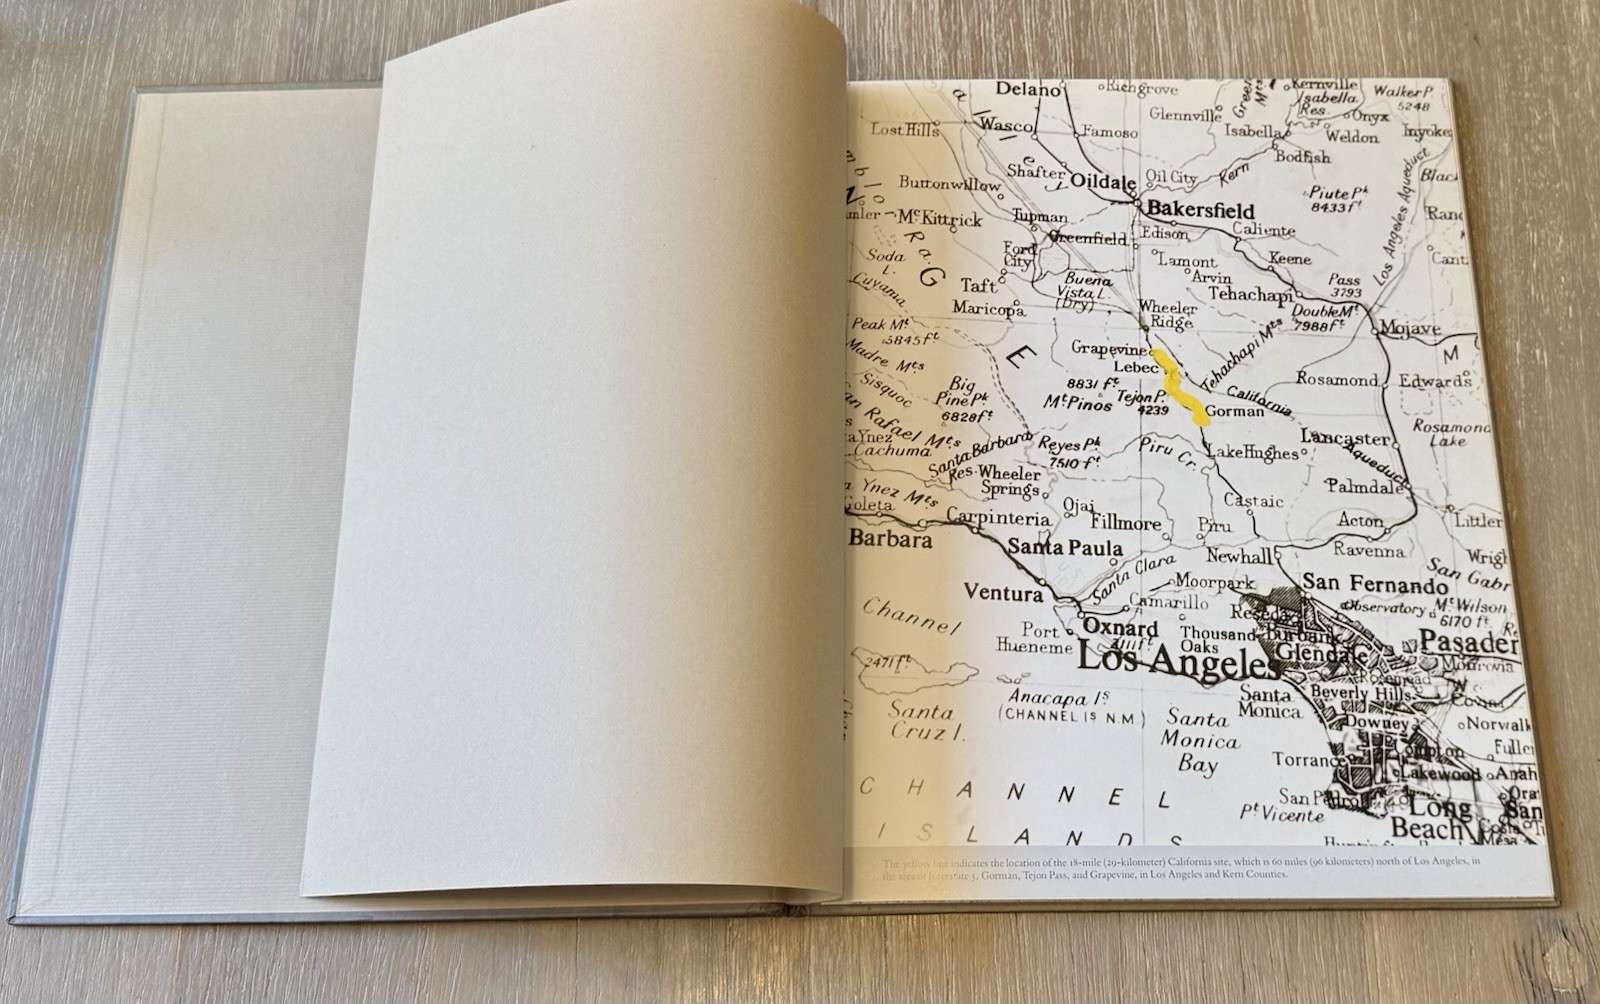 Delano
Richgrove
Kernville
Isabella
Res.
Walker P.
5248
Green
Mts
Glennville
Onyx
Lost Hills
Wasco
Famoso
Isabella
Weldon
Inyoke
Bodfish
Shafter
Oildale
Oil City
Kern
Buttonwillow
Piute Pk
8433 ft
Los Angeles Aqueduct
McKittrick
Tupman
Bakersfield
Greenfield
Edison
Caliente
Ford
City
Soda
L.
Lamont
Keene
Arvin
Cuyama
Taft
Buena
Vista L.
(Dry)
Tehachapi
Pass
3793
Maricopa
Wheeler
Ridge
Double Mt
7988 ft
Mojave
Peak Mt
5845 ft
Grapevine
Lebec
Tehachapi Mts
M
E
Madre Mts
Sisquoc
Big
Pine Pk
6828 ft
8831 ft
Mt Pinos
Tejon P.
4239
California
Rosamond
Edwards
Gorman
Rafael Mts
Rosamond
Lake
Ynez
Cachuma
Santa Barbara
Res.
Reyes Pk
7510 ft
Piru Cr.
Lake Hughes
Lancaster
Aqueduct
Wheeler
Springs
Palmdale
Ynez Mts
Goleta
Carpinteria
Ojai
Fillmore
Castaic
Piru
Acton
Littler
Barbara
Santa Paula
Newhall
Ravenna
Wrigh
San Gabr
Santa Clara
Ventura
Moorpark
San Fernando
Camarillo
Reseda
Observatory
Mt Wilson
6170 ft
Channel
Port
Hueneme
Oxnard
3111 ft
Thousand
Oaks
Burbank
Glendale
Pasader
Los Angeles
Monrovia
Rosemead
2471 ft
Anacapa Is
(CHANNEL IS N.M.)
Santa
Monica
Beverly Hills
Covina
Santa
Cruz I.
Santa
Monica
Bay
Downey
Norwalk
Torrance
Compton
Fuller
Lakewood
Anah
CHANNEL
San Pedro
Pt Vicente
Long
Beach
Ora
San
Costa
Mesa
ISLANDS
The yellow line indicates the location of the 18-mile (29-kilometer) California site, which is 60 miles (96 kilometers) north of Los Angeles, in
the area of Interstate 5, Gorman, Tejon Pass, and Grapevine, in Los Angeles and Kern Counties.